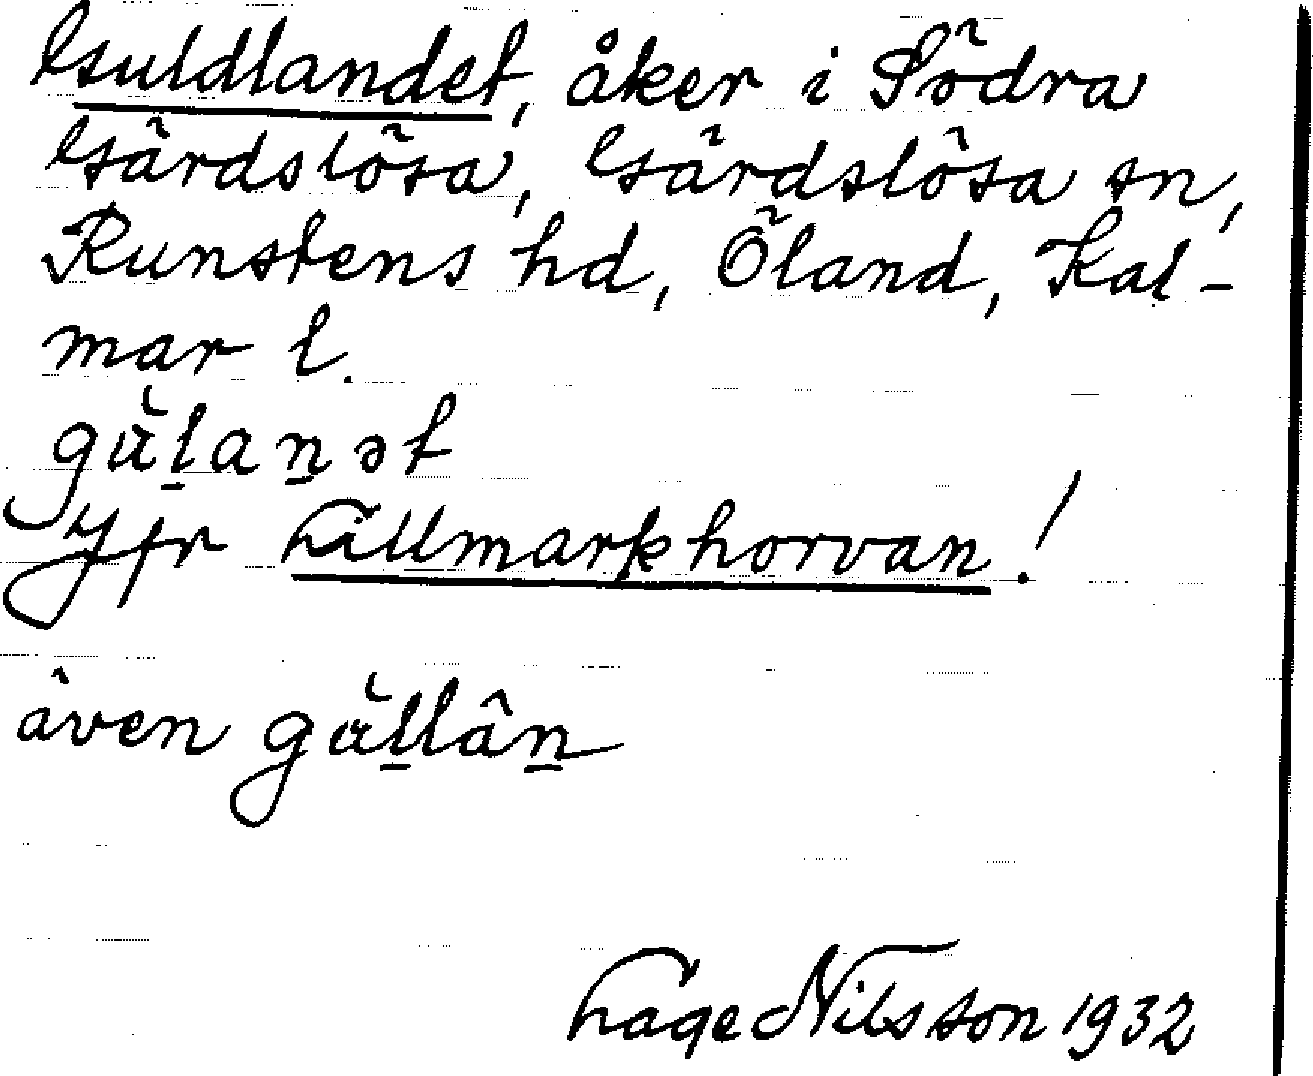 Guldlandet, åker i Södra
Gärdslösa, Gärdslösa sn,
Runstens hd, Öland, Kal-
mar l.
gŭḻaṉət
Jfr Tillmarkhorvan!
även gŭḻlâṉ
Tage Nilsson 1932